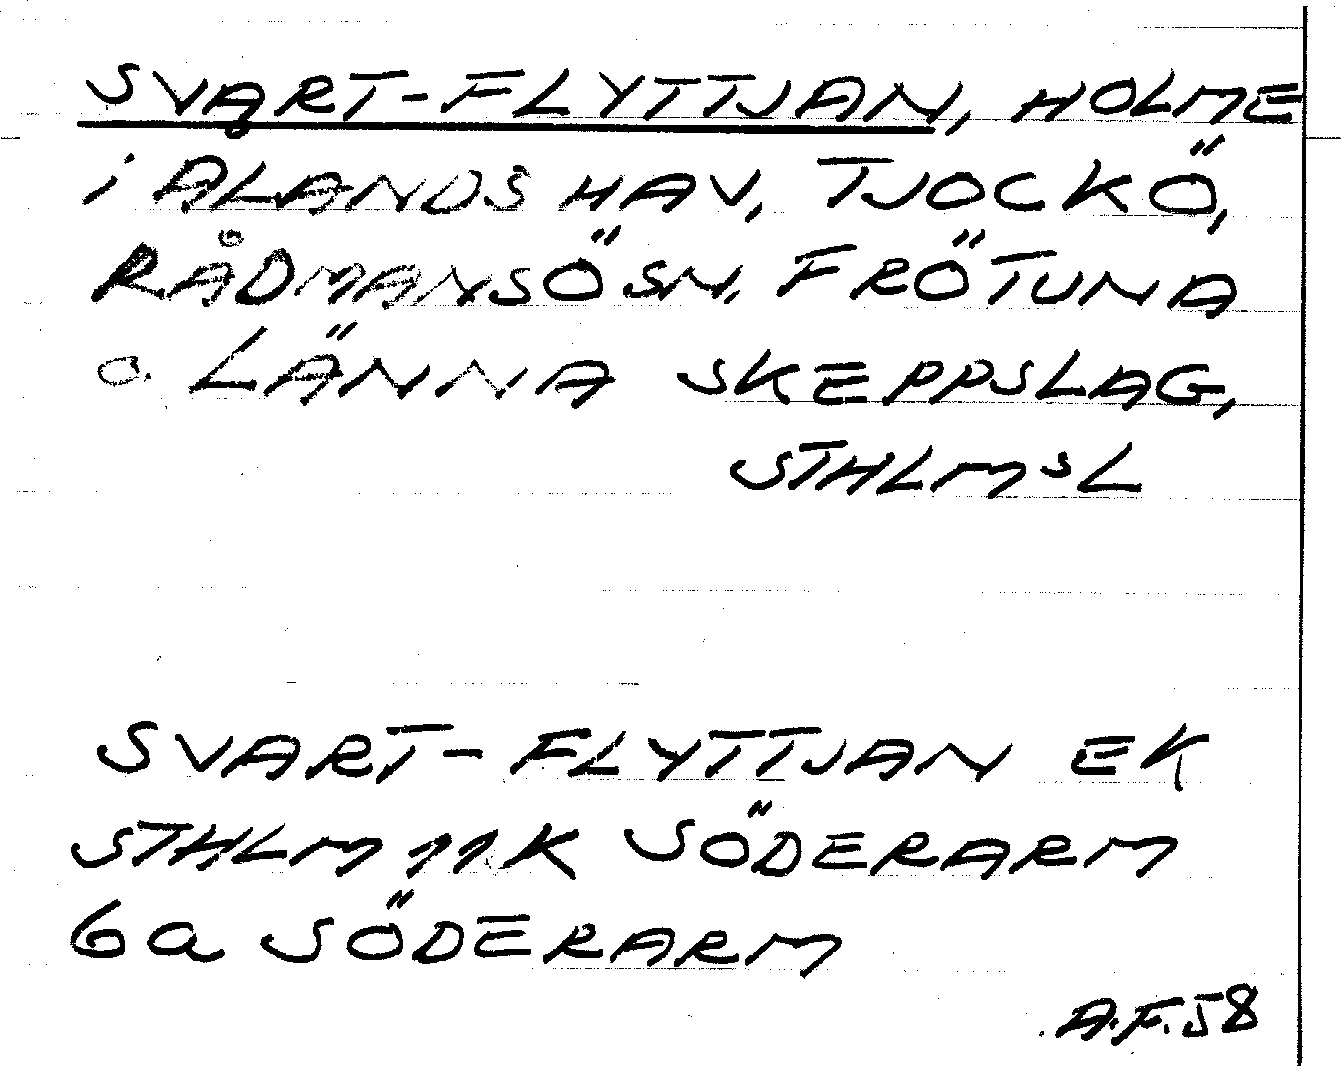 SVART-FLYTTJAN, HOLME
i ÅLANDS HAV, TJOCKÖ,
RÅDMANSÖ SN, FRÖTUNA
o. LÄNNA SKEPPSLAG,
STHLMSL
SVART-FLYTTJAN EK
STHLM 11K SÖDERARM
6a SÖDERARM
A.F. 58